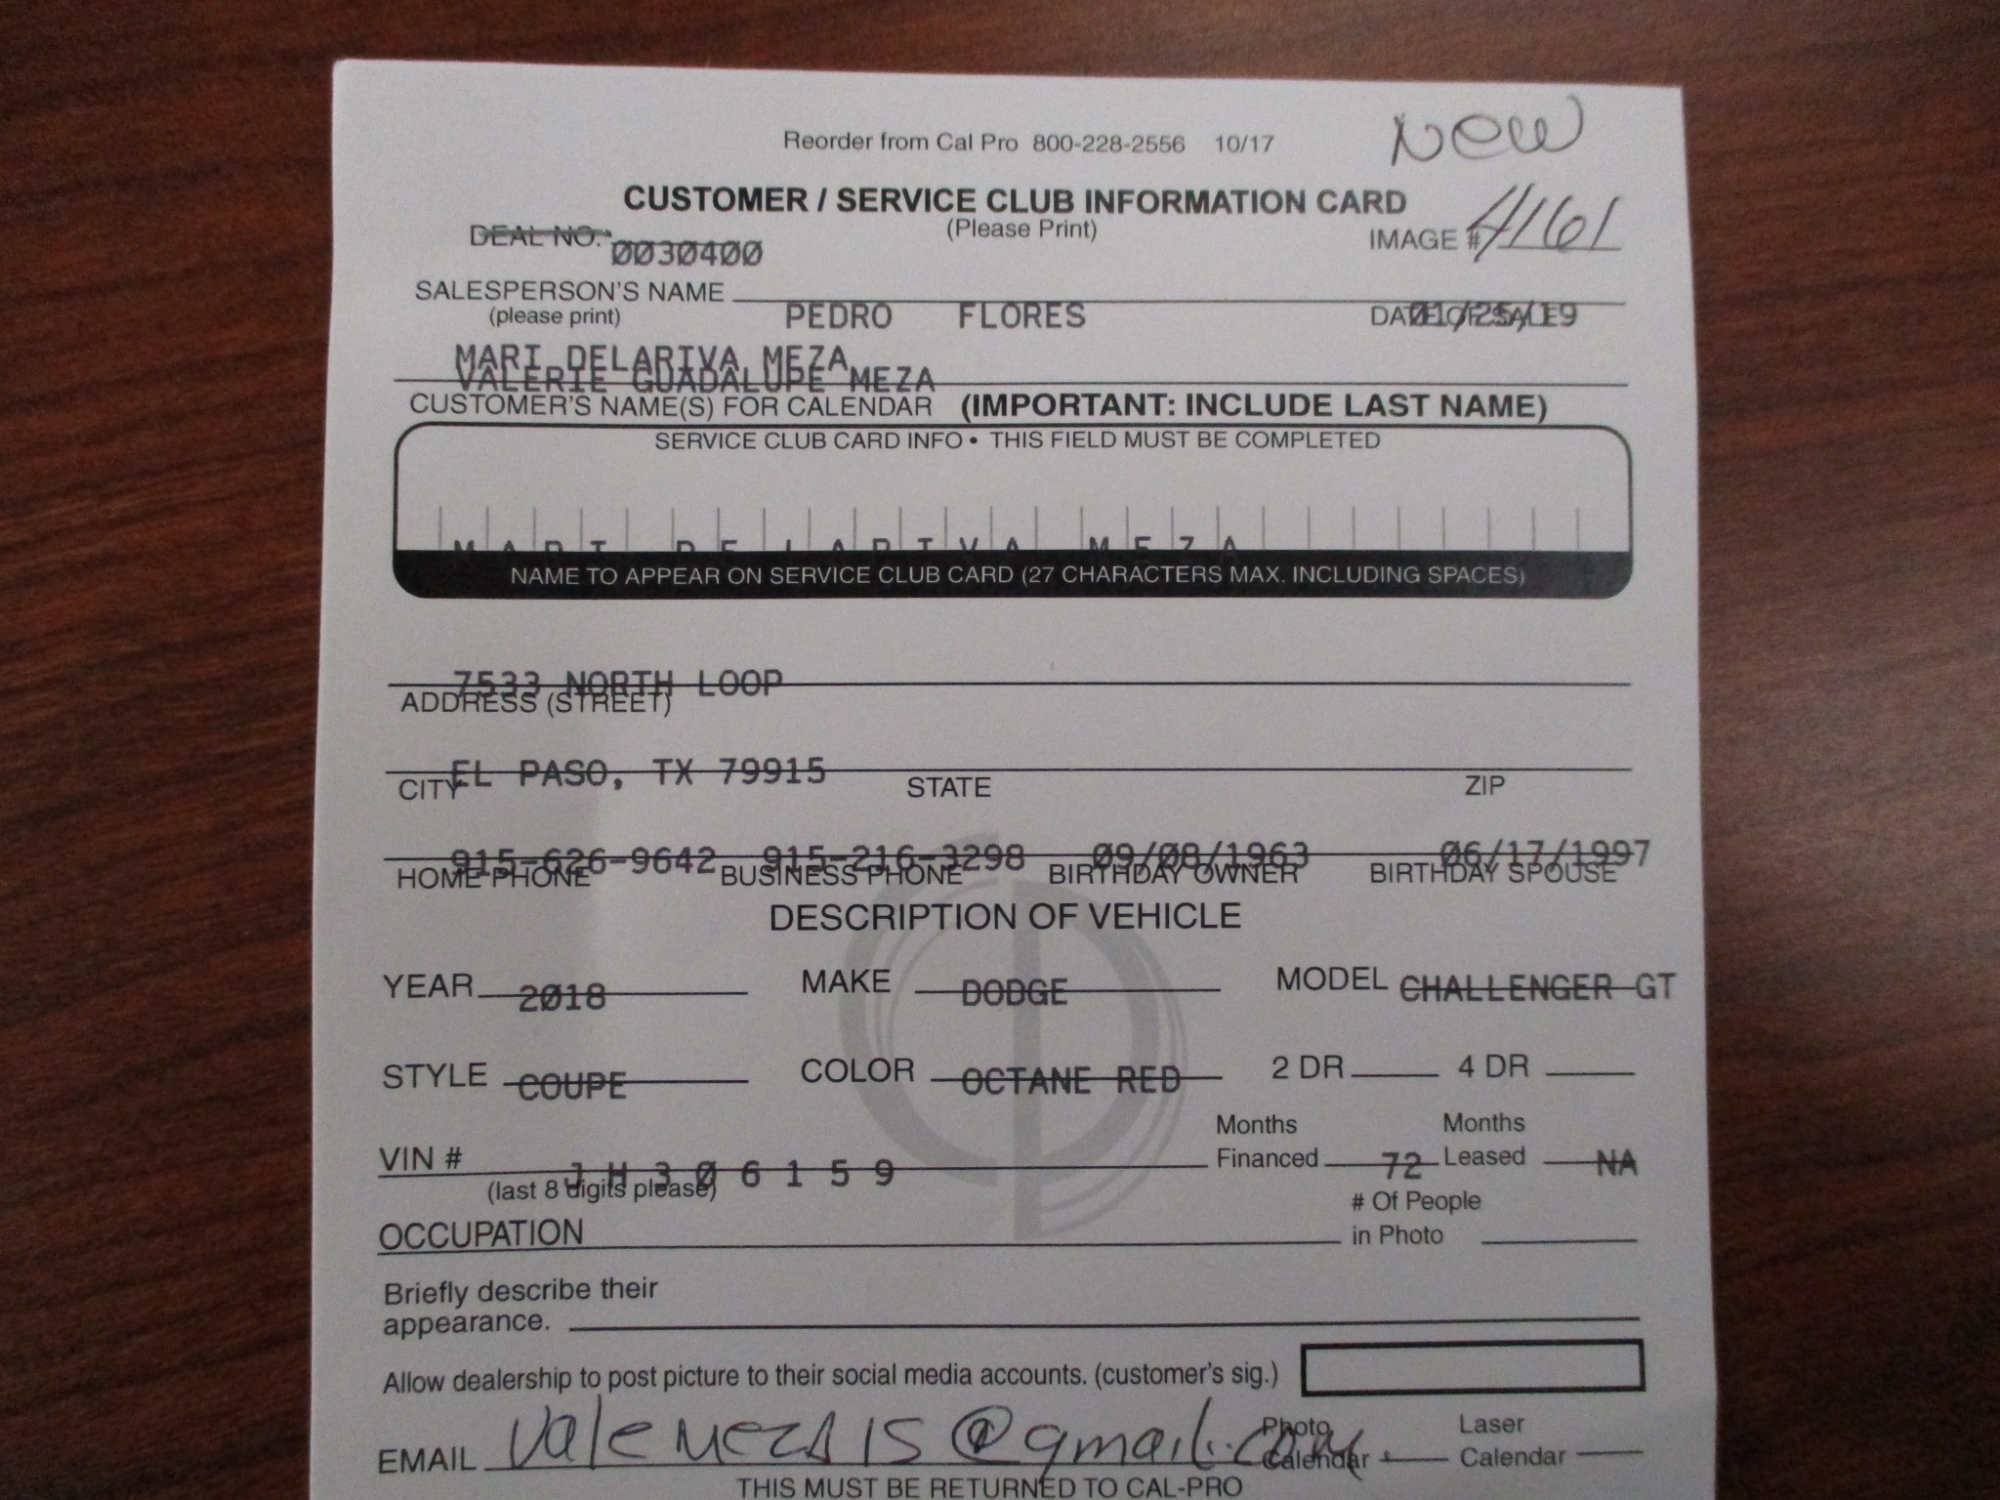 New
Reorder from Cal Pro 800-228-2556 10/17
CUSTOMER / SERVICE CLUB INFORMATION CARD
(Please Print)
DEAL NO. 0030400
IMAGE # 4161
SALESPERSON'S NAME
(please print) PEDRO FLORES DATE OF SALE 01/25/19
MARI DELARIVA MEZA
VALERIE GUADALUPE MEZA
CUSTOMER'S NAME(S) FOR CALENDAR (IMPORTANT: INCLUDE LAST NAME)
SERVICE CLUB CARD INFO • THIS FIELD MUST BE COMPLETED
MARI DE LARIVA MEZA
NAME TO APPEAR ON SERVICE CLUB CARD (27 CHARACTERS MAX. INCLUDING SPACES)
7533 NORTH LOOP
ADDRESS (STREET)
EL PASO, TX 79915
CITY STATE ZIP
915-626-9642 915-216-3298 09/08/1963 06/17/1997
HOME PHONE BUSINESS PHONE BIRTHDAY OWNER BIRTHDAY SPOUSE
DESCRIPTION OF VEHICLE
YEAR 2018 MAKE DODGE MODEL CHALLENGER GT
STYLE COUPE COLOR OCTANE RED 2 DR 4 DR
VIN # J H 3 0 6 1 5 9 Months Financed 72 Months Leased NA
(last 8 digits please)
OCCUPATION # Of People in Photo
Briefly describe their
appearance.
Allow dealership to post picture to their social media accounts. (customer's sig.)
EMAIL valemeza15@gmail.com Photo Calendar Laser Calendar
THIS MUST BE RETURNED TO CAL-PRO